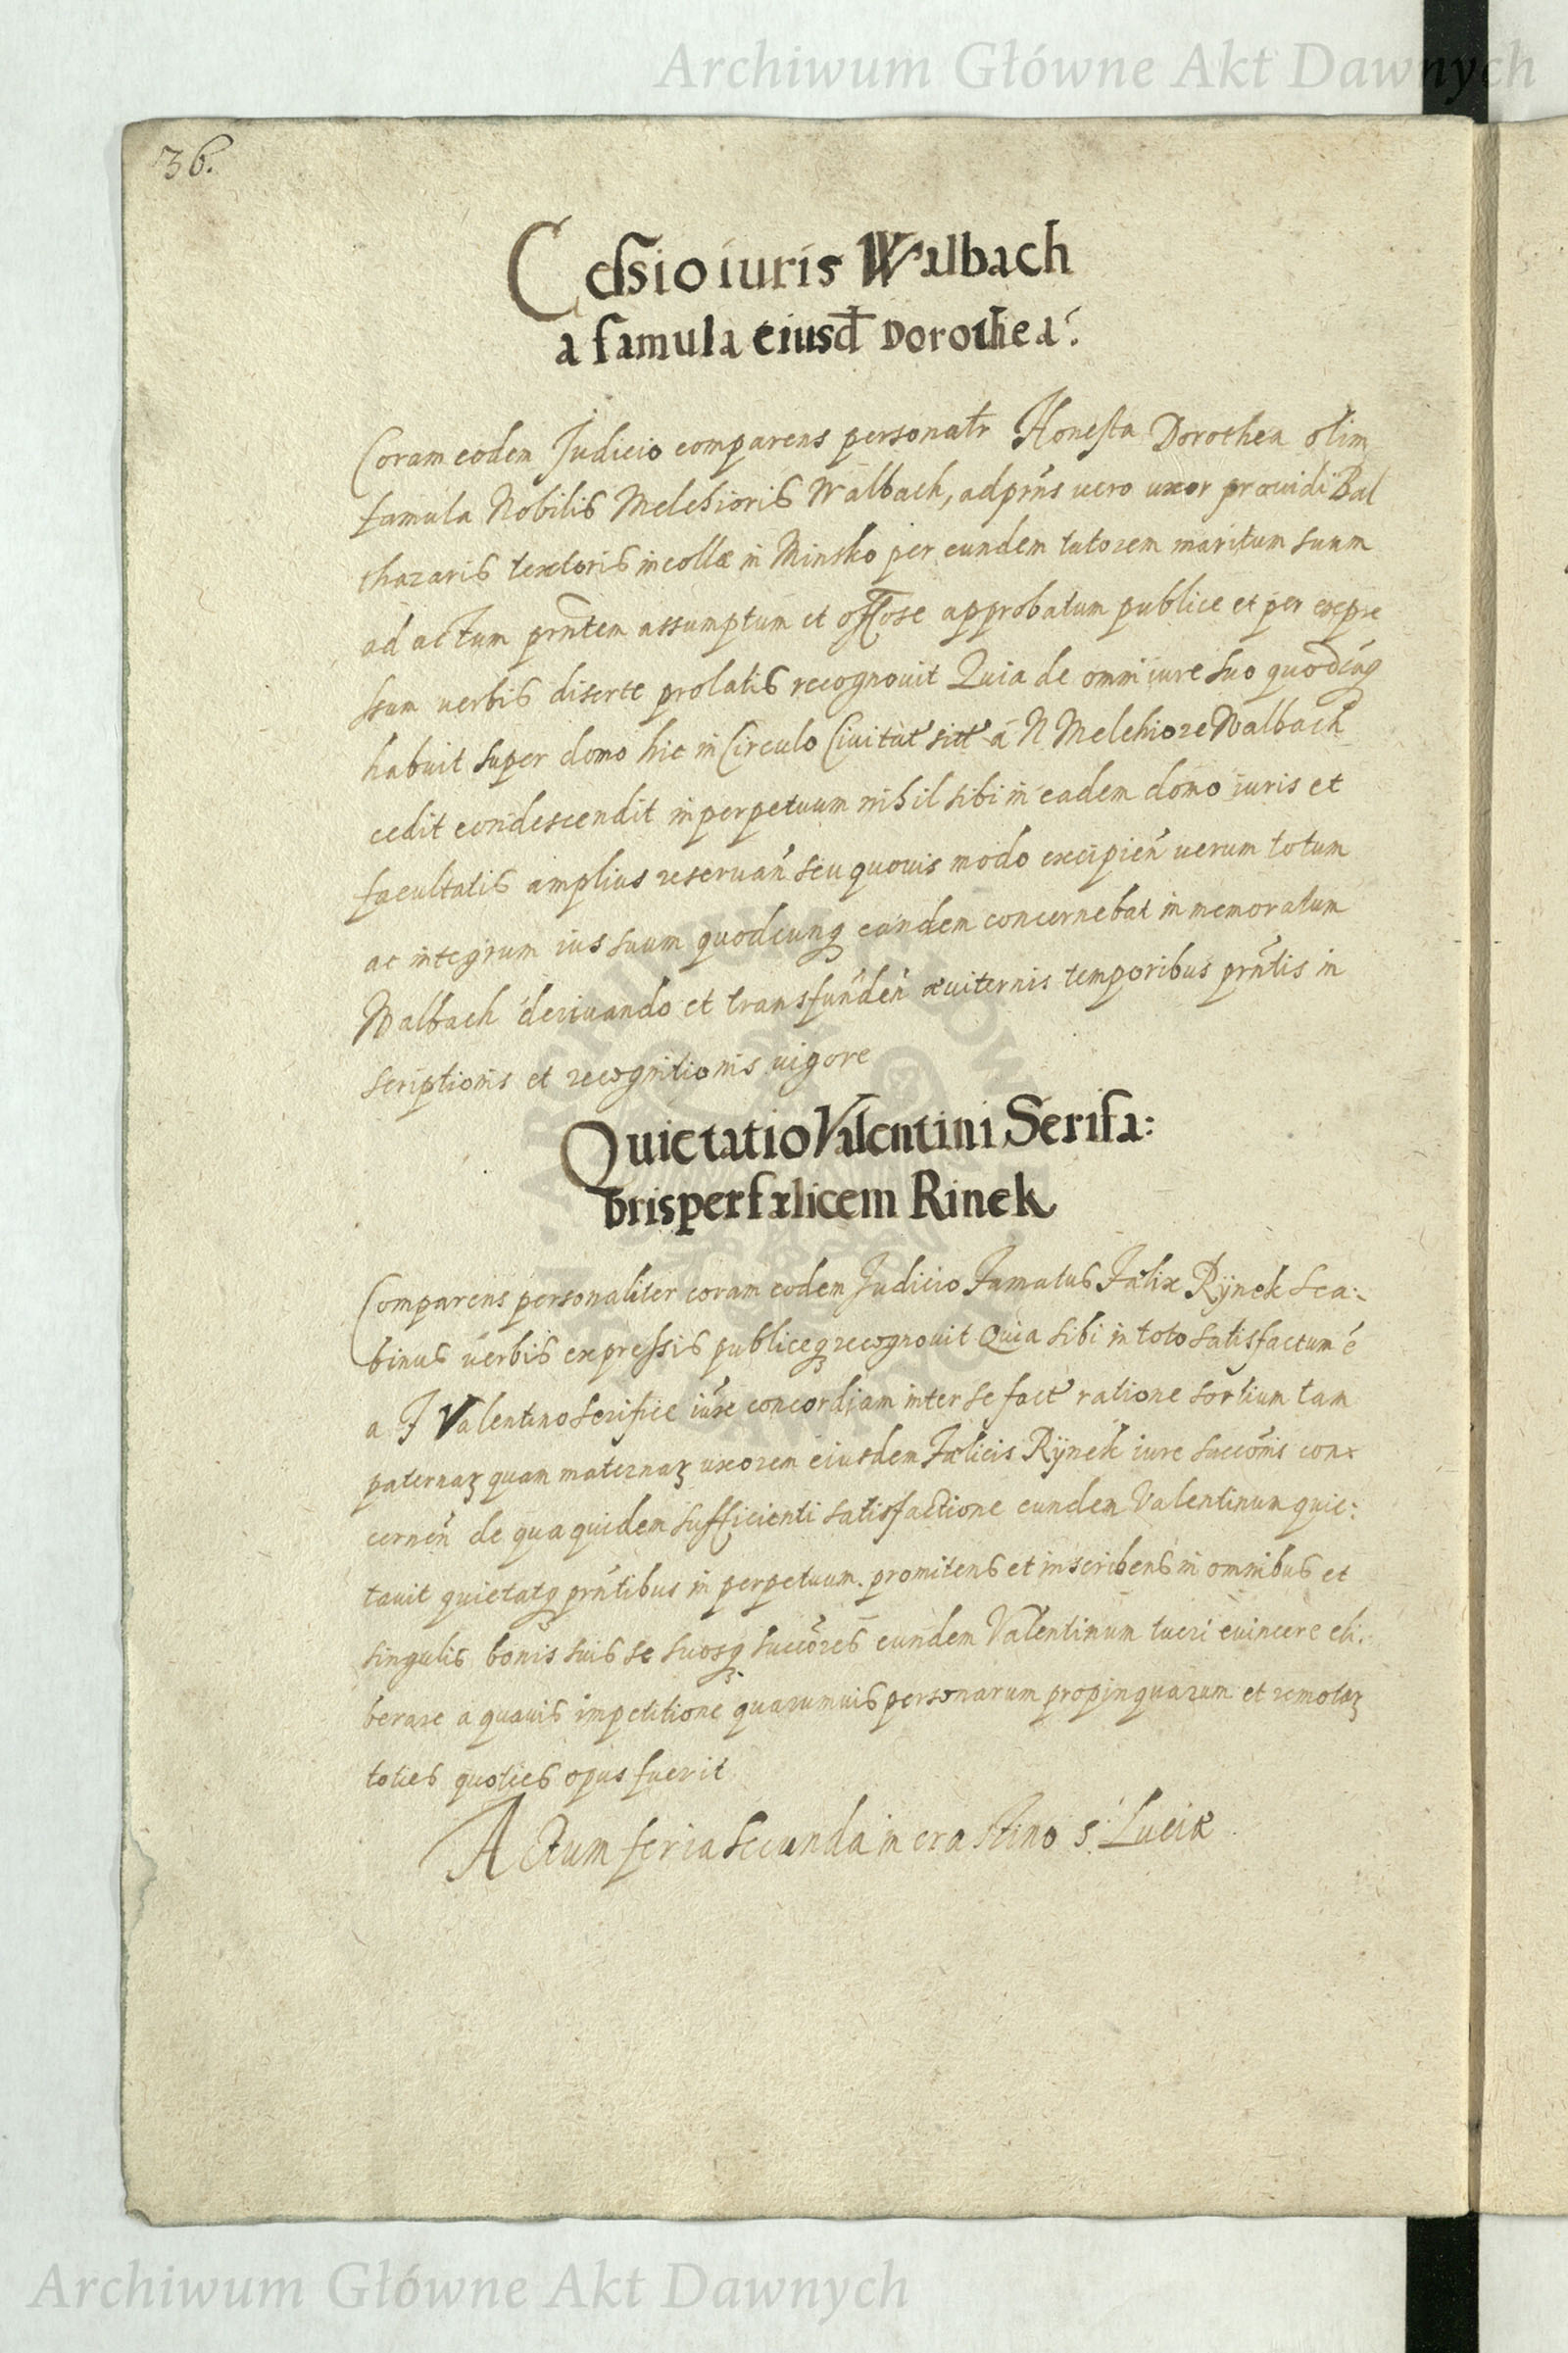 Archiwum Główne Akt Dawnych
36.
Cessio iuris Walbach
a famula eiusd̄ Dorothea.
Coram eodem Judicio comparens personalr̄ Honesta Dorothea olim
famula Nobilis Melchioris Walbach, ad prn̄s uero uxor prouidi Bal
thazaris textoris incolæ in Minsko per eundem tutorem maritum suum
ad actum prn̄tem assumptum et offōse approbatum publice et per expre
ssum uerbis diserte prolatis recognouit Quia de omni iure suo quodcūq
habuit super domo hic in Circulo Ciuitat sitt a N Melchiore Walbach
cedit condescendit in perpetuum nihil sibi in eadem domo iuris et
facultatis amplius reseruan̄ seu quouis modo excipien̄ uerum totum
ac integrum ius suum quodcunq eandem concernebat in memoratum
Walbach deriuando et transfunden̄ æuiternis temporibus prn̄tis in
scriptionis et recognitionis uigore
Quietatio Valentini Serifa:
bris per fælicem Rinek
Comparens personaliter coram eodem Judicio Famatus Fælix Rÿnek Sca:
binus uerbis expressis publiceq recognouit Quia sibi in toto satisfactum ē
a F Valentino Serifice iuxe concordiam inter se fact ratione sortium tam
paternaꝝ quam maternaꝝ uxorem eiusdem Fælicis Rÿnek iure succōnis con
cernen̄ de qua quidem sufficienti satisfactione eundem Valentinum quie:
tauit quietatq prn̄tibus in perpetuum. promitens et inscribens in omnibus et
singulis bonis suis se suosq succōres eundem Valentinum tueri euincere eli:
berare a quauis impetitione quarumuis personarum propinquarum et remotaꝝ
toties quoties opus fuerit
Actum feria secunda in crastino S. Luciæ
Archiwum Główne Akt Dawnych